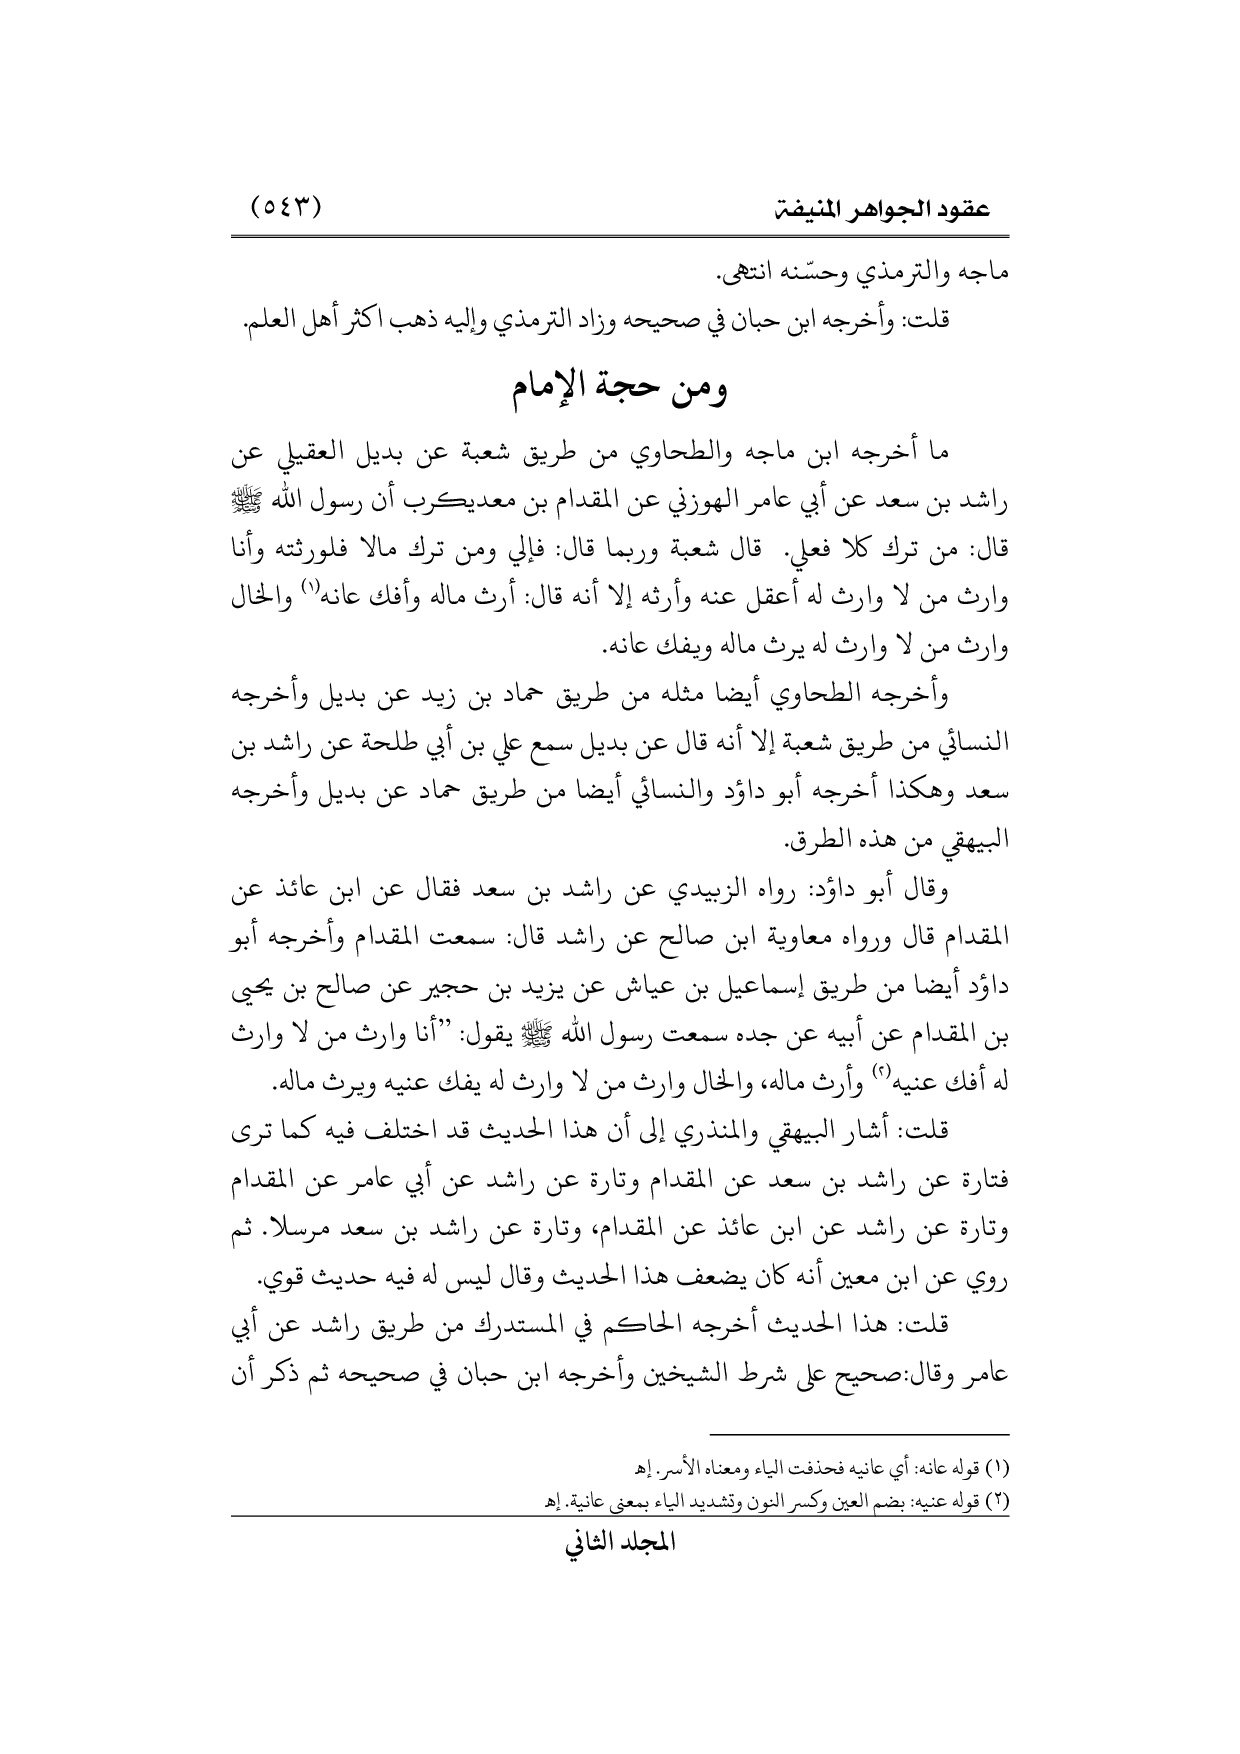 عقود الجواهر المنيفة (٥٤٣)
ماجه والترمذي وحسّنه انتهى.
قلت: وأخرجه ابن حبان في صحيحه وزاد الترمذي وإليه ذهب اكثر أهل العلم.
ومن حجة الإمام
ما أخرجه ابن ماجه والطحاوي من طريق شعبة عن بديل العقيلي عن
راشد بن سعد عن أبي عامر الهوزني عن المقدام بن معديكرب أن رسول الله ﷺ
قال: من ترك كلا فعلي. قال شعبة وربما قال: فإلي ومن ترك مالا فلورثته وأنا
وارث من لا وارث له أعقل عنه وأرثه إلا أنه قال: أرث ماله وأفك عانه(١) والخال
وارث من لا وارث له يرث ماله ويفك عانه.
وأخرجه الطحاوي أيضا مثله من طريق حماد بن زيد عن بديل وأخرجه
النسائي من طريق شعبة إلا أنه قال عن بديل سمع علي بن أبي طلحة عن راشد بن
سعد وهكذا أخرجه أبو داؤد والنسائي أيضا من طريق حماد عن بديل وأخرجه
البيهقي من هذه الطرق.
وقال أبو داؤد: رواه الزبيدي عن راشد بن سعد فقال عن ابن عائذ عن
المقدام قال ورواه معاوية ابن صالح عن راشد قال: سمعت المقدام وأخرجه أبو
داؤد أيضا من طريق إسماعيل بن عياش عن يزيد بن حجير عن صالح بن يحيى
بن المقدام عن أبيه عن جده سمعت رسول الله ﷺ يقول: ”أنا وارث من لا وارث
له أفك عنيه(٢) وأرث ماله، والخال وارث من لا وارث له يفك عنيه ويرث ماله.
قلت: أشار البيهقي والمنذري إلى أن هذا الحديث قد اختلف فيه كما ترى
فتارة عن راشد بن سعد عن المقدام وتارة عن راشد عن أبي عامر عن المقدام
وتارة عن راشد عن ابن عائذ عن المقدام، وتارة عن راشد بن سعد مرسلا. ثم
روي عن ابن معين أنه كان يضعف هذا الحديث وقال ليس له فيه حديث قوي.
قلت: هذا الحديث أخرجه الحاكم في المستدرك من طريق راشد عن أبي
عامر وقال:صحيح على شرط الشيخين وأخرجه ابن حبان في صحيحه ثم ذكر أن
(١) قوله عانه: أي عانيه فحذفت الياء ومعناه الأسر. إهـ
(٢) قوله عنيه: بضم العين وكسر النون وتشديد الياء بمعنى عانية. إهـ
المجلد الثاني